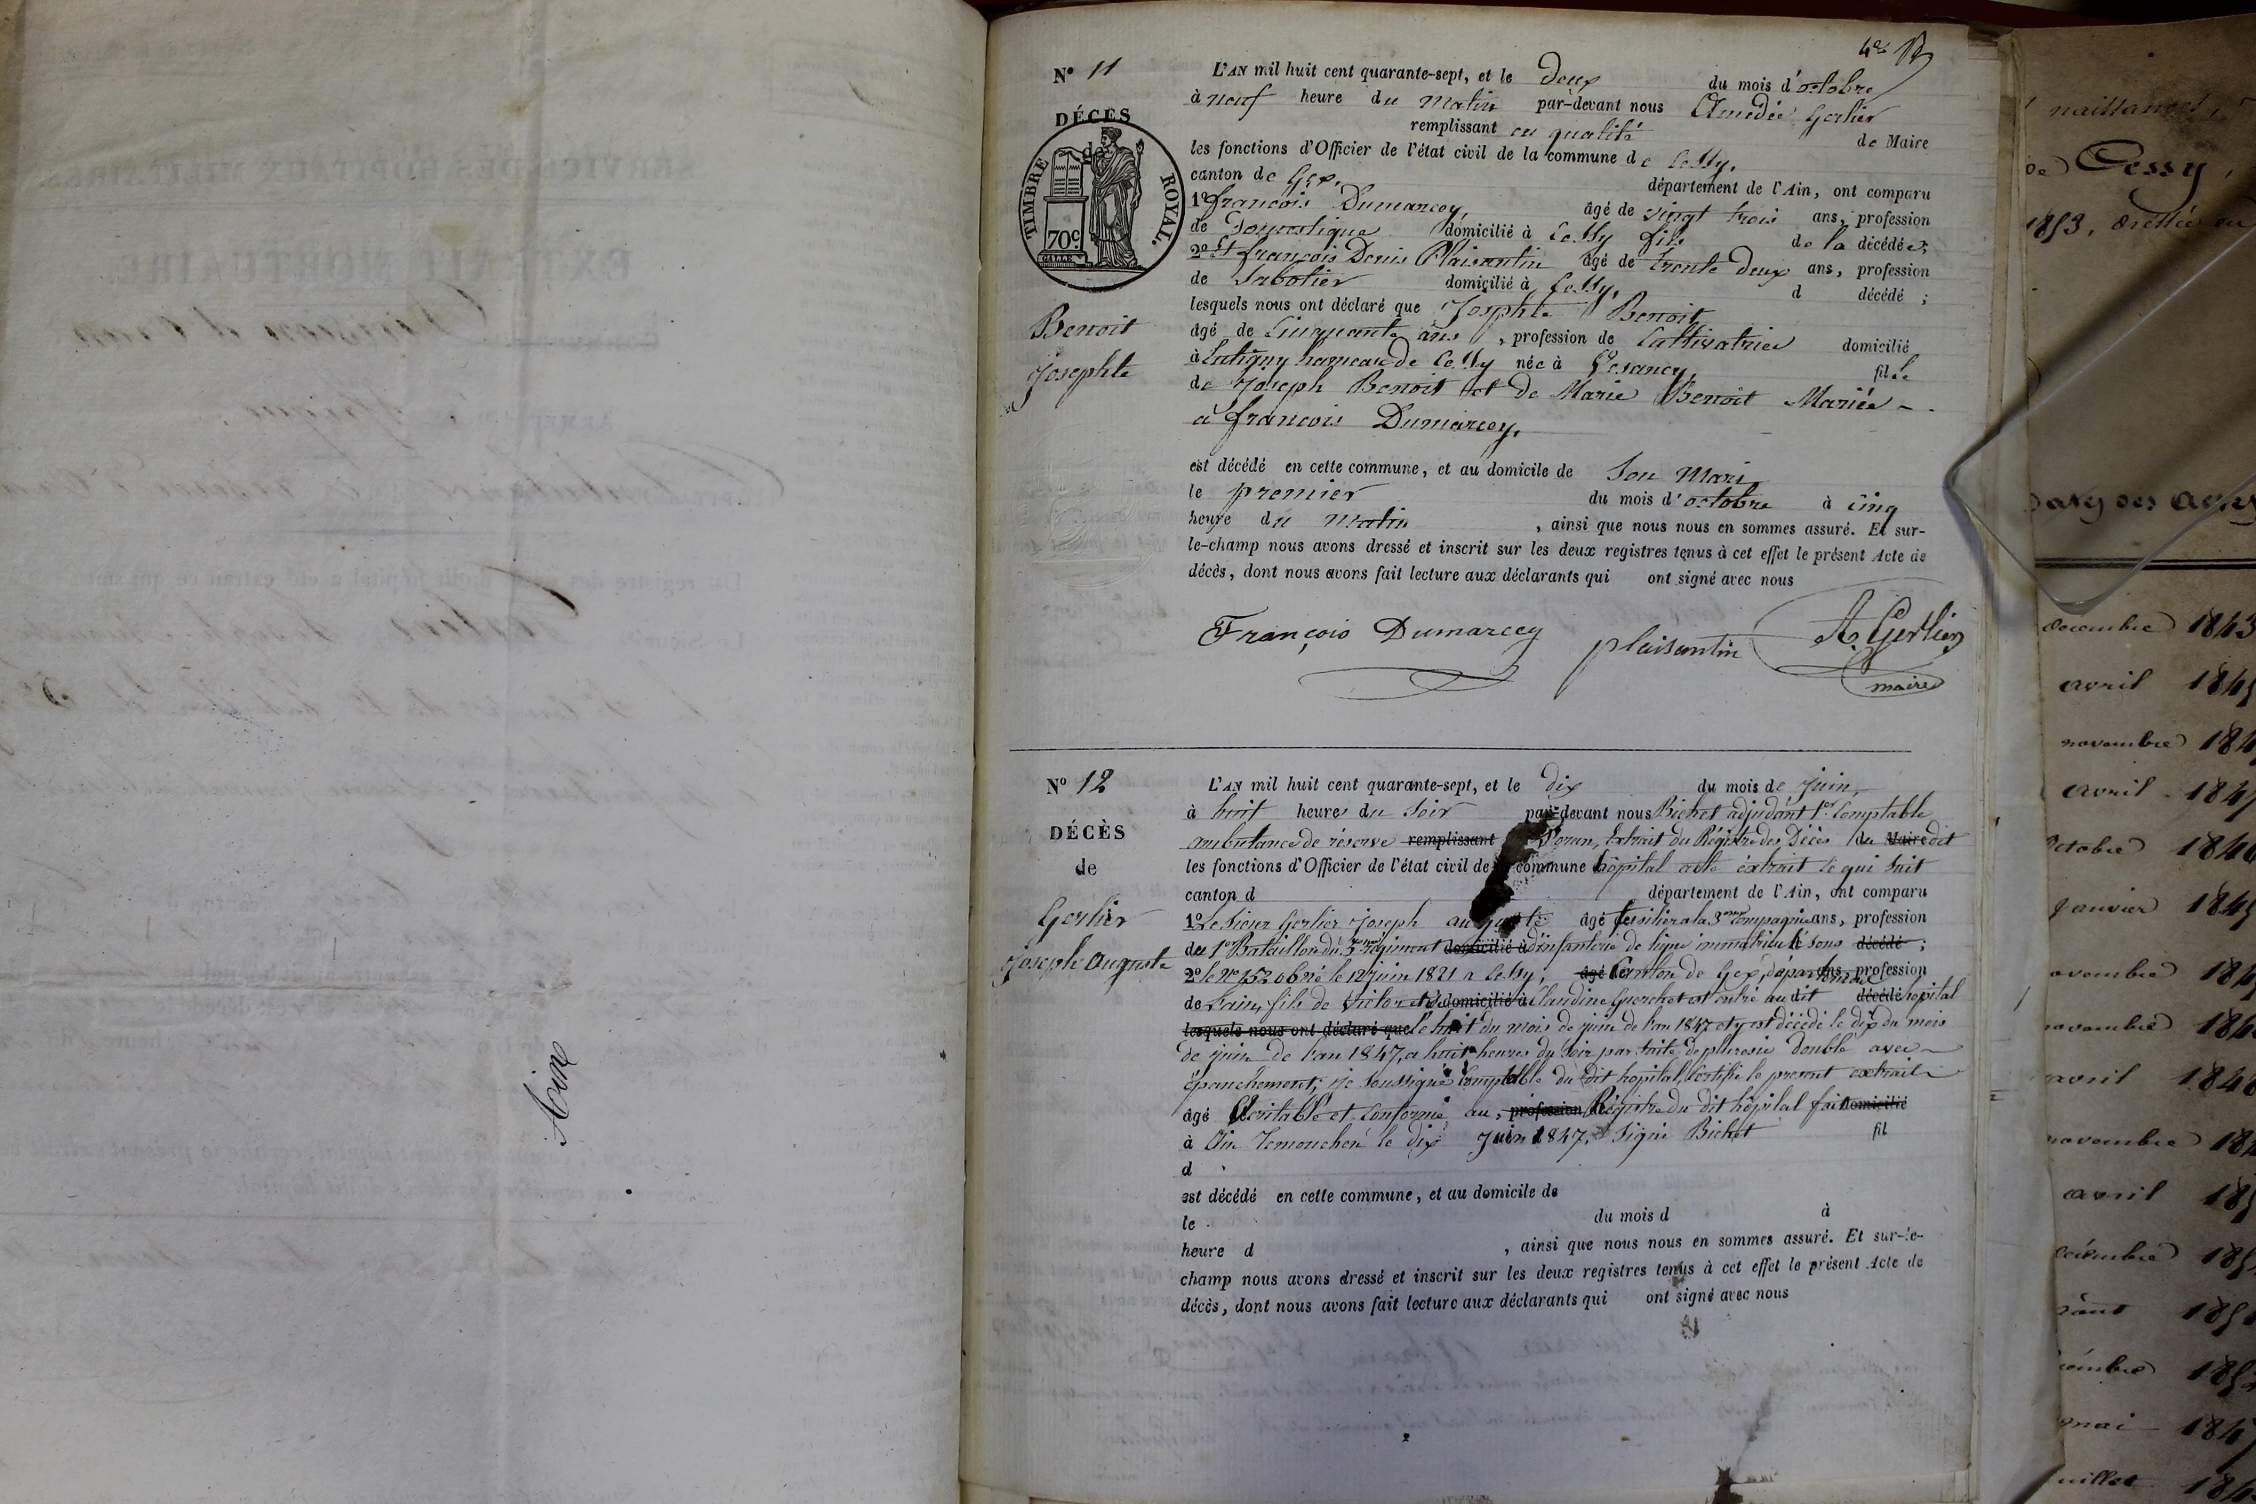 Ain
4e R
N° 11
DÉCÈS
de
TIMBRE ROYAL.
70c.
Benoit
Josephte
L'AN mil huit cent quarante-sept, et le deux du mois d'octobre
à neuf heure du matin par-devant nous Amedée Gerlier
remplissant en qualité de Maire
les fonctions d'Officier de l'état civil de la commune de Cessy,
canton de Gex, département de l'Ain, ont comparu
1° francois Dumarcey, âgé de vingt trois ans, profession
de Domestique domicilié à Cessy fils de la décédée;
2° Et françois Denis Plaisantin âgé de trente deux ans, profession
de Sabotier domicilié à Cessy, d décédé ;
lesquels nous ont déclaré que Josephte Benoit
âgé de Cinquante ans, profession de Cultivatrice domicilié
à hameau de Cessy née à Vesancy, fille
de Joseph Benoit et de Marie Benoit Mariée
à francois Dumarcey,
est décédé en cette commune, et au domicile de Son Mari
le premier du mois d'octobre à cinq
heure du matin, ainsi que nous nous en sommes assuré. Et sur-
le-champ nous avons dressé et inscrit sur les deux registres tenus à cet effet le présent Acte de
décès, dont nous avons fait lecture aux déclarants qui ont signé avec nous
François Dumarcey plaisantin A. Gerlier
maire
N° 12
DÉCÈS
de
Gerlier
Joseph Auguste
L'AN mil huit cent quarante-sept, et le dix du mois de Juin,
à huit heures du Soir par-devant nous Bichet adjudant 1er Comptable
ambulance de réserve remplissant D'oran, Extrait du Régistre des Décès du Maire dit
les fonctions d'Officier de l'état civil de commune hôpital acte éxtrait Ce qui Suit
canton d département de l'Ain, ont comparu
1° Le Sieur Gerlier Joseph auguste âgé fusilier a la 3eme Compagnie ans, profession
de 1er Bataillon du régiment domicilié à d'infanterie de ligne immatriculé sous décédé ;
2° le n° né le 12 juin 1821 a Cessy, âgé Canton de Gex, département ans, profession
de Lain, fils de Victor et de domicilié à Claudine Guerchet est entré au dit décédé hopital
lesquels nous ont déclaré que le huit du mois de juin de l'an 1847 et y est décédé le dix du mois
de juin de l'an 1847, a huit heures du Soir par Suite de pluresie Double avec
épanchement, je Soussigné Comptable du dit hopital, Certifie le present extrait
âgé Veritable et Conforme au, profession de Régistre du dit hôpital fait domicilié
à Ain Temouchen le dix Juin 1847, Signé Bichet fil
d
est décédé en cette commune, et au domicile de
le du mois d à
heure d , ainsi que nous nous en sommes assuré. Et sur-le-
champ nous avons dressé et inscrit sur les deux registres tenus à cet effet le présent Acte de
décès, dont nous avons fait lecture aux déclarants qui ont signé avec nous
naissances,
de Cessy,
decembre 1843
avril
novembre
avril 1847
octobre
janvier
avril
novembre
avril
mai 1847